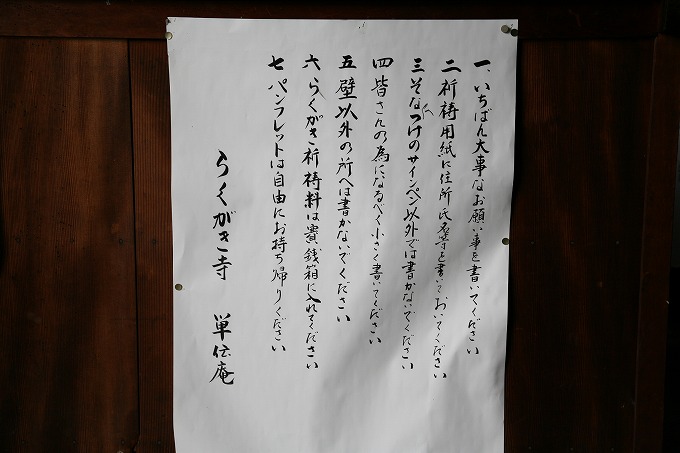 一、いちばん大事なお願い事を書いてください
二 祈祷用紙に住所氏名等を書いておいてください
三 そなへつけのサインペン以外では書かないでください
四 皆さんの為になるべく小さく書いてください
五 壁以外の所へは書かないでください
六 らくがき祈祷料は賽銭箱に入れてください
七 パンフレットは自由にお持ち帰りください
らくがき寺 単伝庵